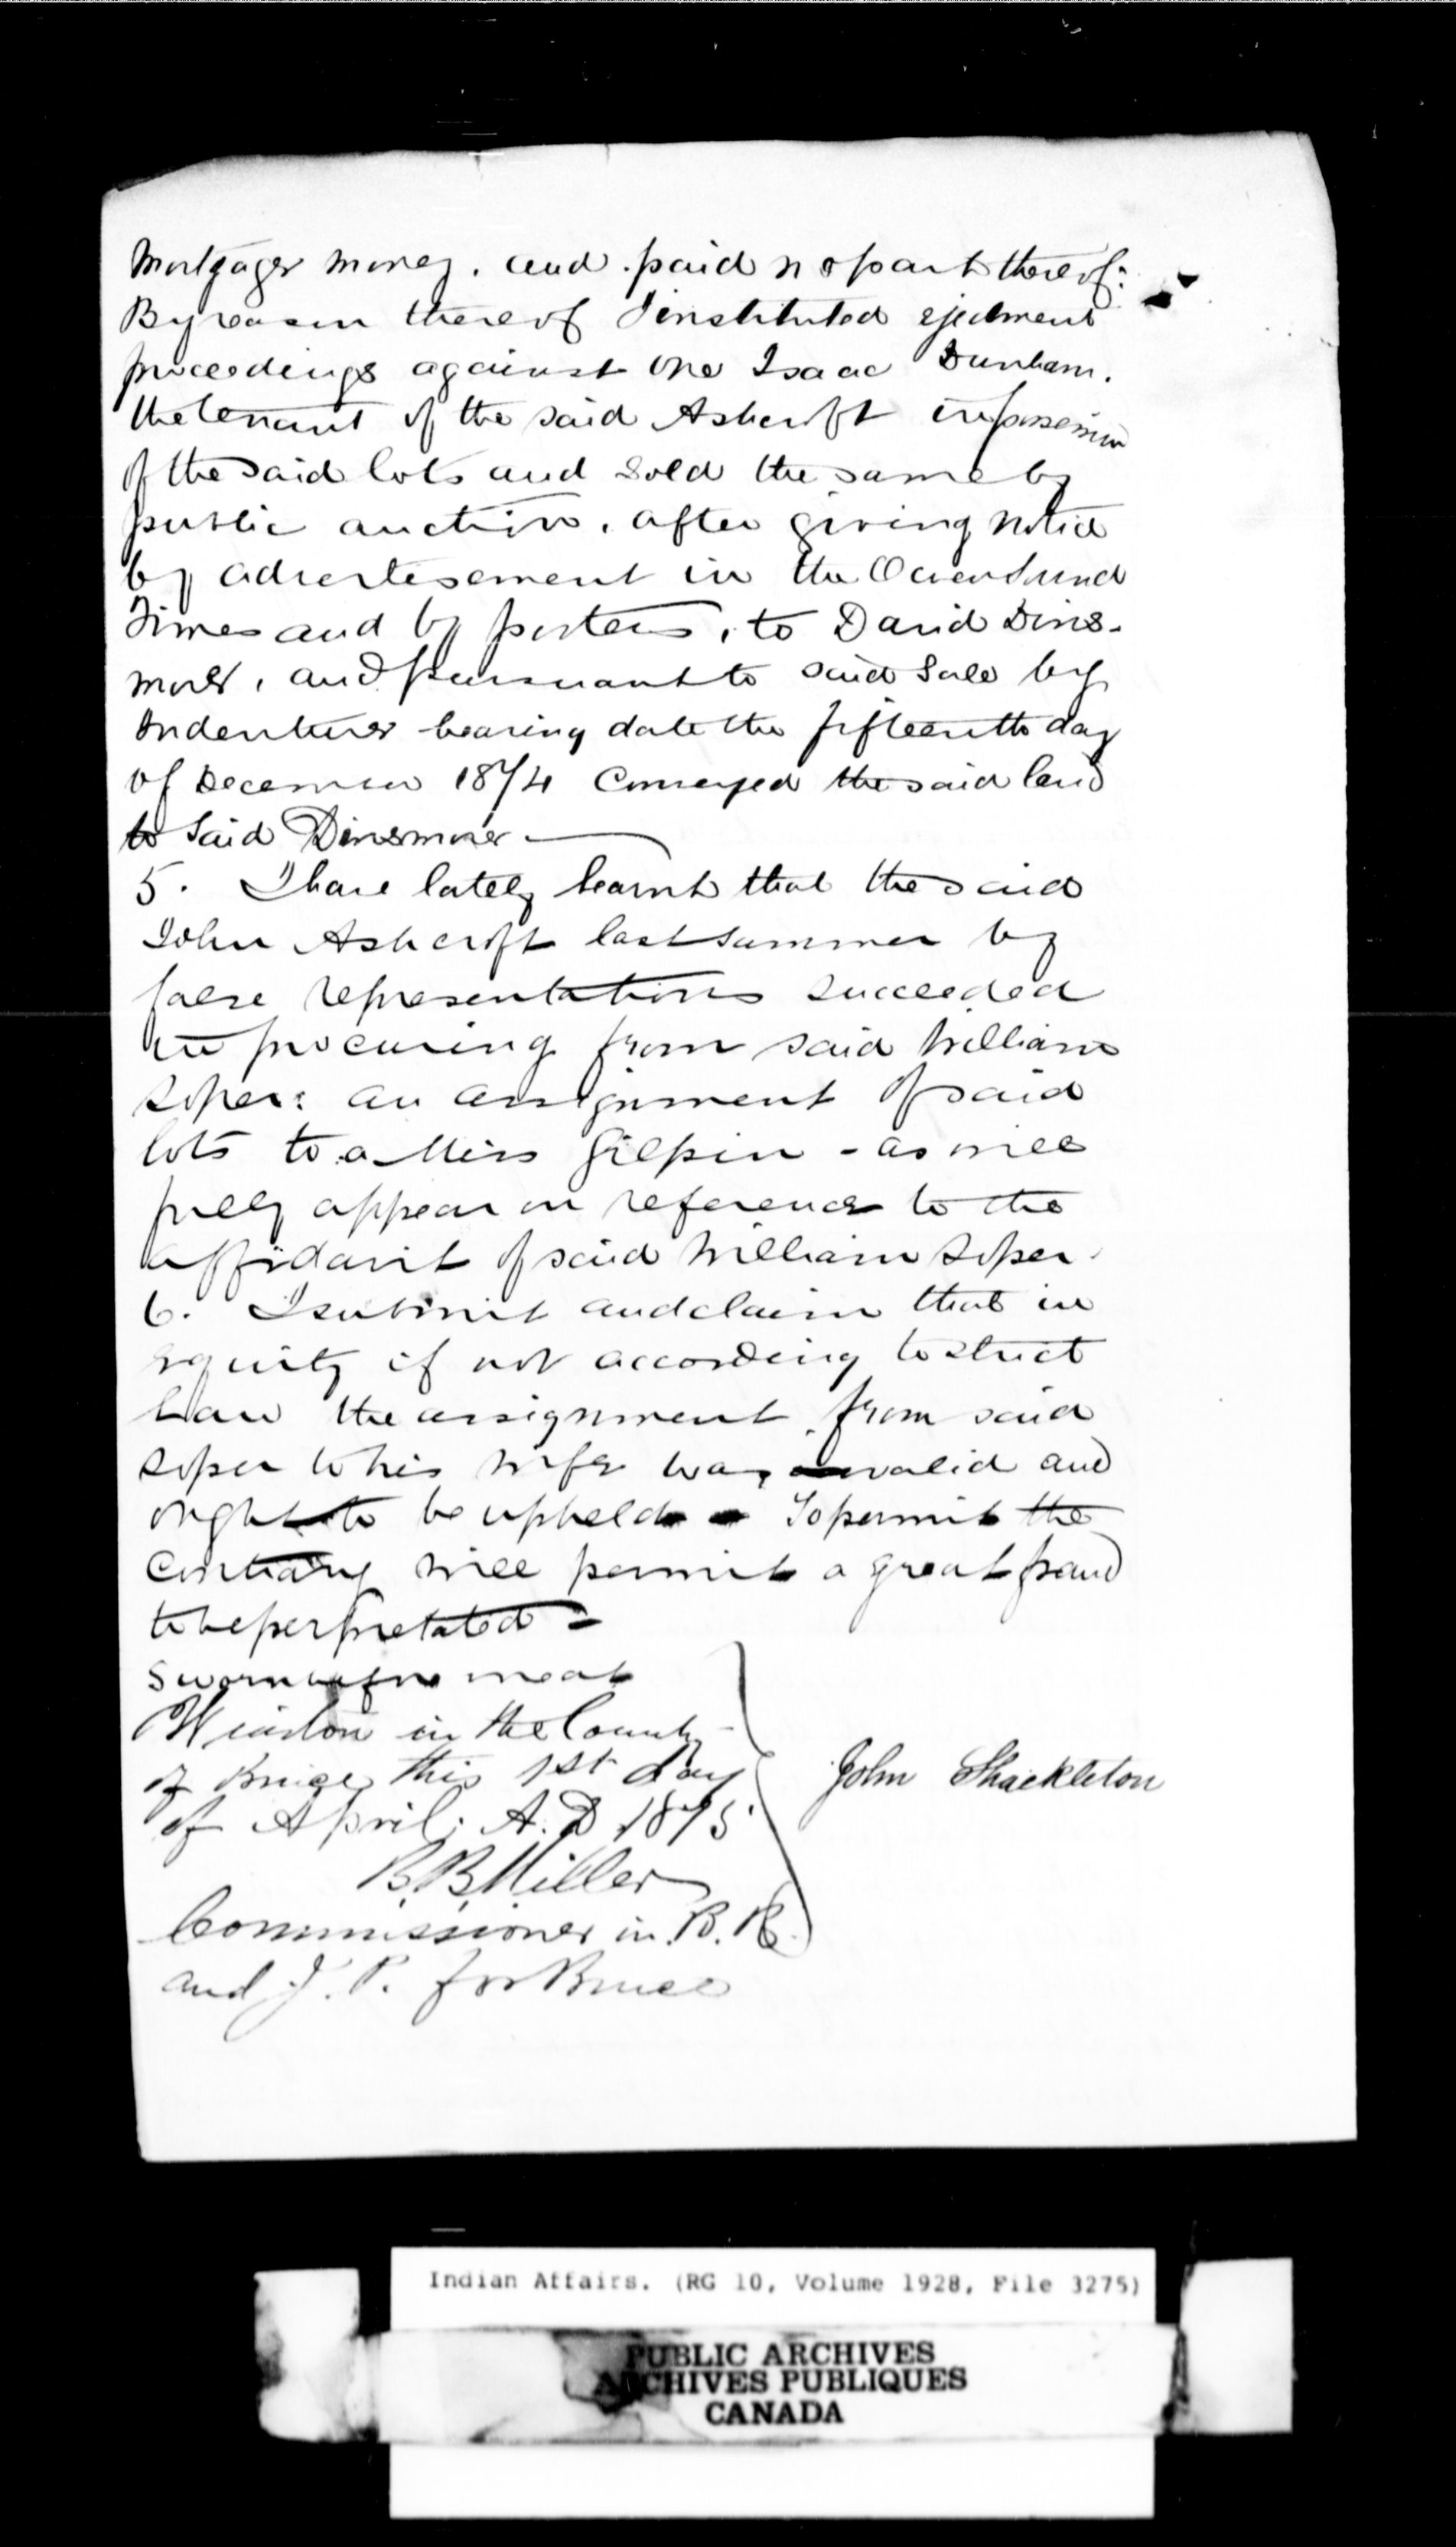 Mortgage money, and paid no part thereof:
By reason thereof I instituted ejectment
proceedings against one Isaac Dunham,
the tenant of the said Ashcroft in possession
of the said lots and sold the same by
public auction, after giving notice
by advertisement in the Owen Sound
Times and by posters, to David Dins-
more, and pursuant to said sale by
Indenture bearing date the fifteenth day
of December 1874 conveyed the said land
to said Dinsmore
5. I have lately learnt that the said
John Ashcroft last summer by
false representations succeeded
in procuring from said William
Soper: an assignment of said
lots to a Miss Gilpin - as will
fully appear on reference to the
affidavit of said William Soper.
6. I submit and claim that in
equity if not according to strict
law the assignment from said
Soper to his wife was valid and
ought to be upheld To permit the
contrary will permit a great fraud
to be perpretated
Sworn before me at
Wiarton in the County
of Bruce this 1st day
of April A.D 1875
John Shackleton
B.B. Miller
Commissioner in B.R.
and J.P. for Bruce
Indian Affairs. (RG 10, Volume 1928, File 3275)
PUBLIC ARCHIVES
ARCHIVES PUBLIQUES
CANADA